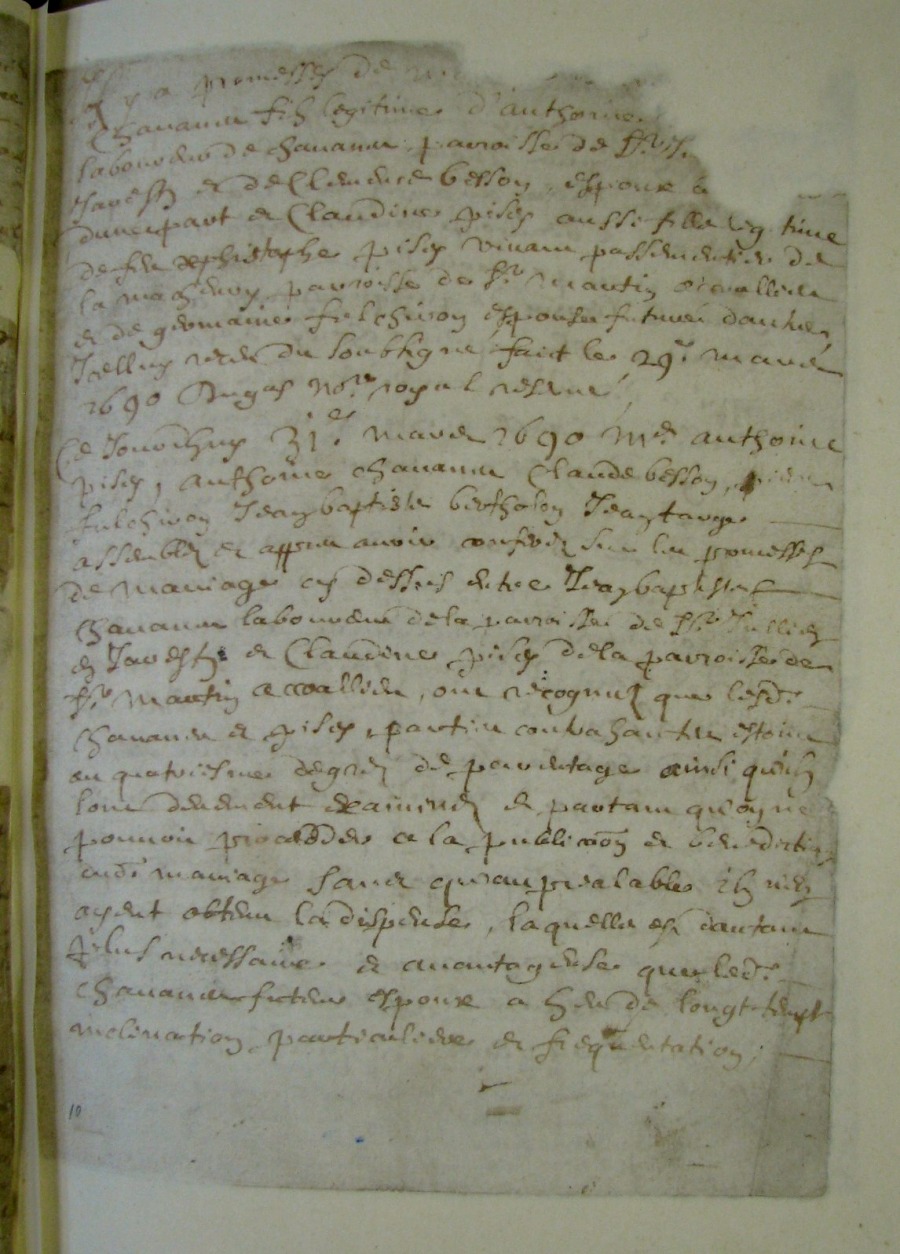 Il y a promesses de
Chavanne fils legitime d'anthoine
laboureur de chavanne parroisse de St
Jarestz et de Clemence besson, espoux a
d'une part et Claudine pisey aussi fille legitime
de feu christophe pisey vivant passementier de
la parroisse de St martin acoallieu
et de germaine fulchiron espouse future d'autre,
Icelluy receu du soubsigné fait le 29e mars
1690 Dugas nore royal reservé
Ce Jourdhuy 31e mars 1690 Me anthoine
pisey, anthoine chavanne Claude besson,
fulchiron Jean baptiste bertholon Jean
assemblez et appres avoir conferez sur les promesses
de mariage cy dessus entre Jean baptiste
chavanne laboureur de la parroisse de St Jullien
en Jarestz et Claudine pisey de la parroisse de
St martin acoallieu, ont recognu que lesd.
chavanne et pisey, parties contrahantes estoint
au quatriesme degrez de parentage ainsi qu'ils
l'ont deuement examinez et partant qu'on ne
pouvoit proceder a la publicaon et benediction
dud. mariage sans qu'au prealable ils n'en
ayent obtenu la dispense, laquelle est d'autant
plus necessaire et avantageuse que led.
chavanne futeur espoux a heu de longt temps
inclination particuliere et frequentation,
10